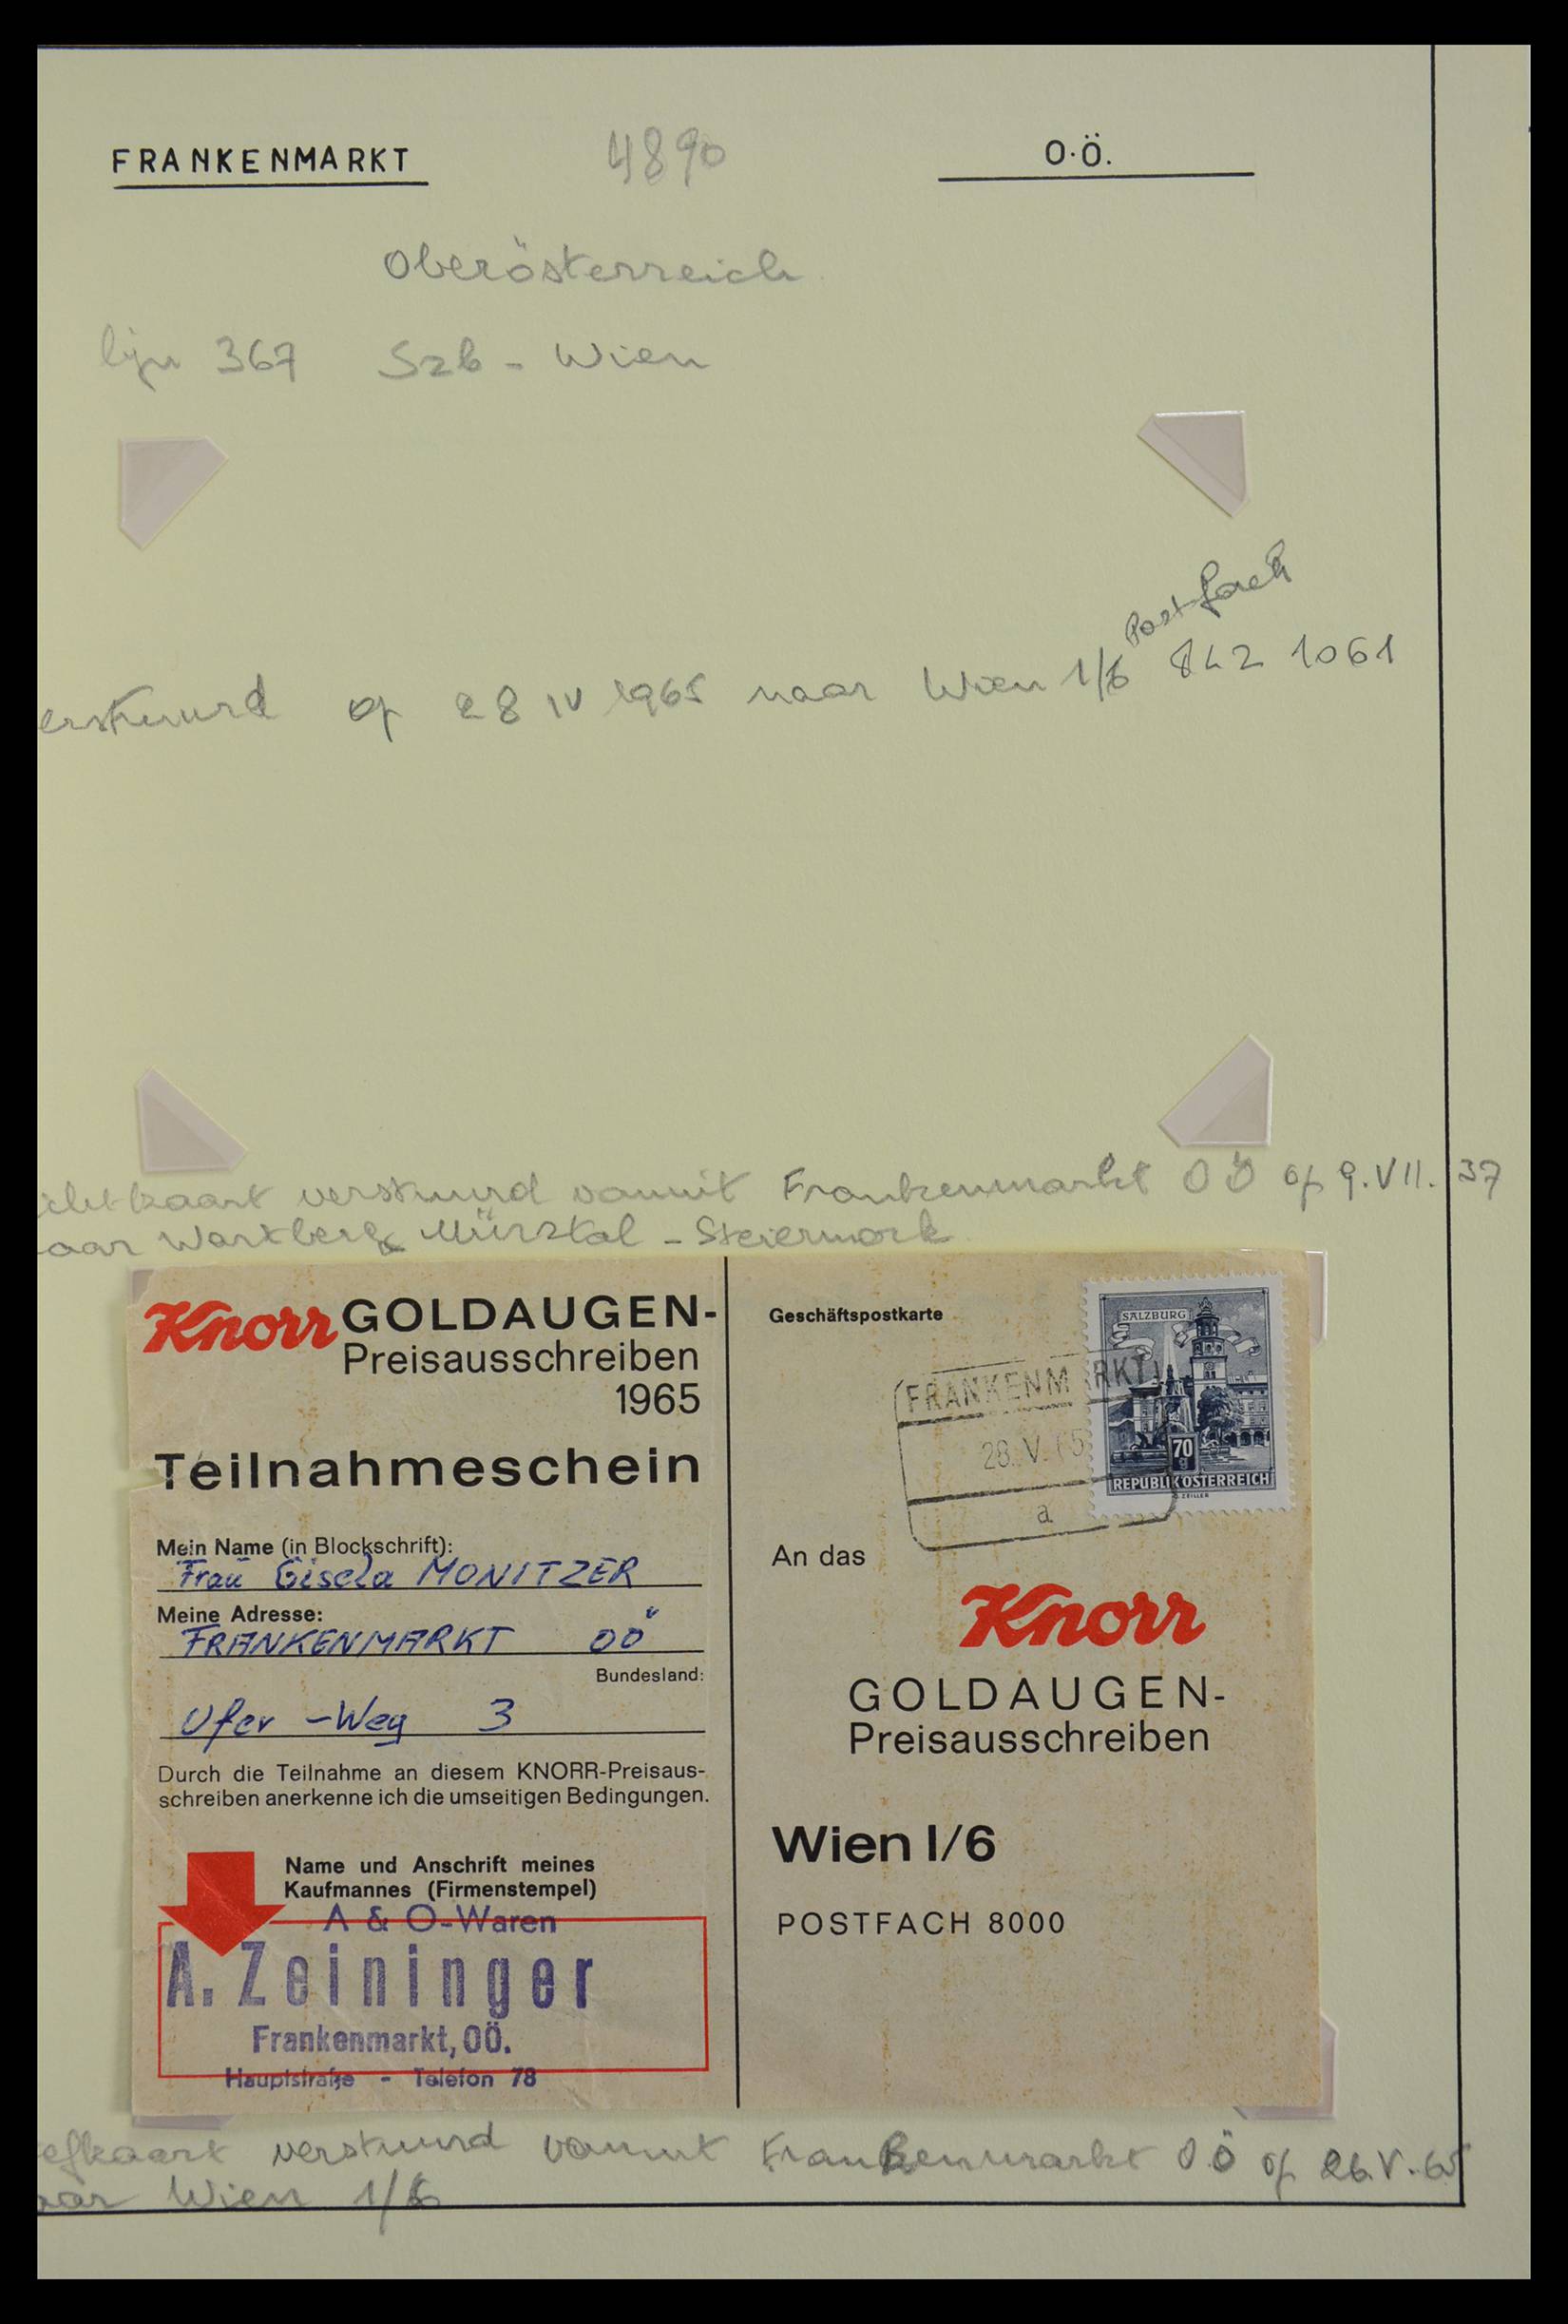 FRANKENMARKT 4890 O.Ö.
Oberösterreich
lijn 367 Szb - Wien
Postfach
erstuurd op 28 IV 1965 naar Wien 1/6 842 1061
chtkaart verstuurd vanuit Frankenmarkt OÖ op 9.VII.37
aar Wartberg Mürztal - Steiermark
Knorr GOLDAUGEN-
Preisausschreiben
1965
Teilnahmeschein
Mein Name (in Blockschrift):
Frau Gisela MONITZER
Meine Adresse:
FRANKENMARKT OÖ
Bundesland:
Ufer-Weg 3
Durch die Teilnahme an diesem KNORR-Preisaus-
schreiben anerkenne ich die umseitigen Bedingungen.
Name und Anschrift meines
Kaufmannes (Firmenstempel)
A & O-Waren
A. Zeininger
Frankenmarkt, OÖ.
Hauptstraße - Telefon 78
Geschäftspostkarte
SALZBURG
70 g
REPUBLIK ÖSTERREICH
FRANKENMARKT
28. V. 65
a
An das
Knorr
GOLDAUGEN-
Preisausschreiben
Wien I/6
POSTFACH 8000
efkaart verstuurd vanuit Frankenmarkt OÖ op 26.V.65
aar Wien 1/6